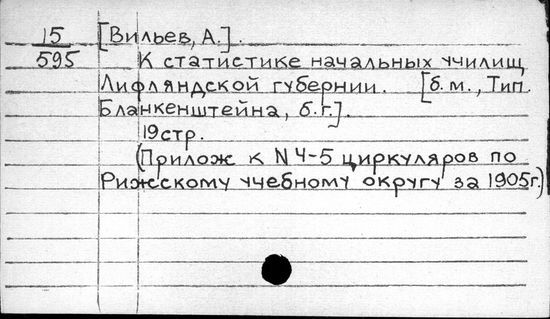 15 [Вильев, А.].
595 К статистике начальных училищ
Лифляндской губернии. [б.м., Тип.
Бланкенштейна, б.г.].
19 стр.
(Прилож к N 4-5 циркуляров по
Рижскому учебному округу за 1905г.)